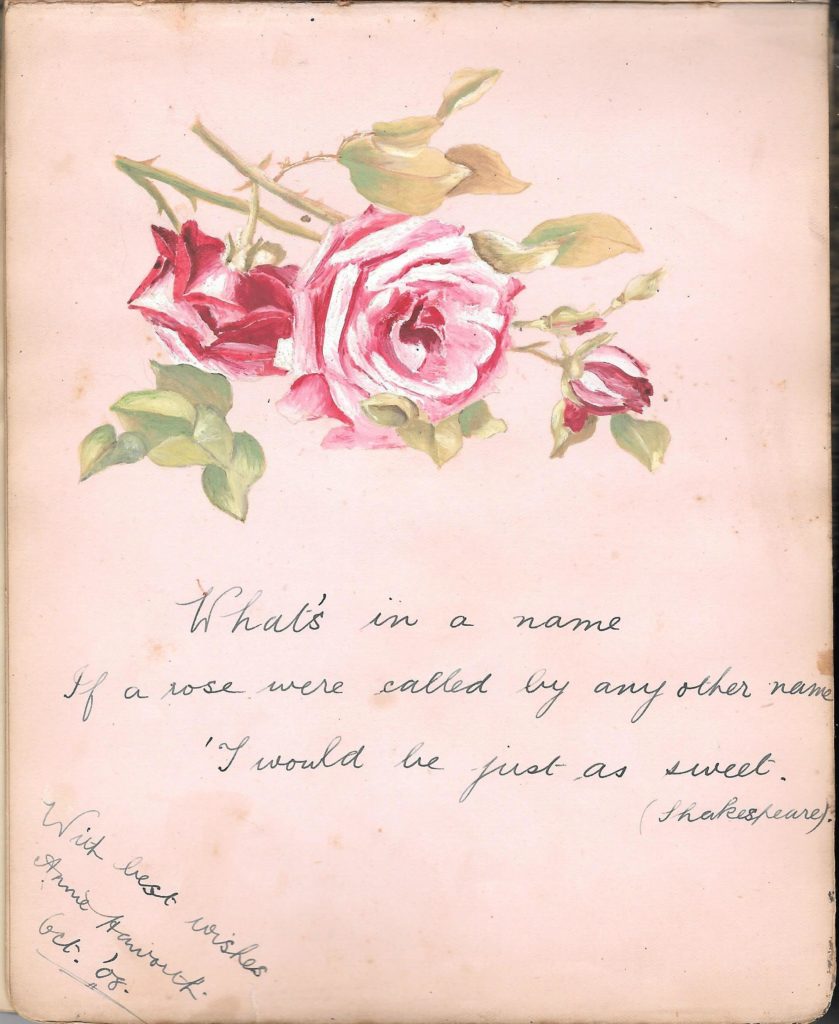 What's in a name
If a rose were called by any other name
'T would be just as sweet.
(Shakespeare).
With best wishes
Annie Haworth.
Oct. '08.